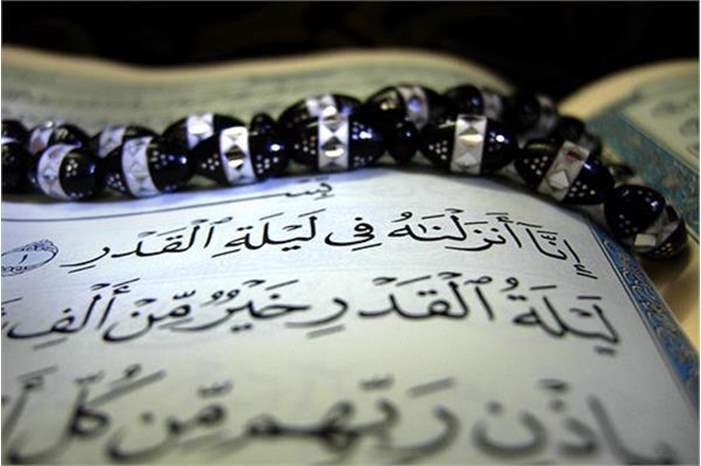 إِنَّآ أَنزَلۡنَٰهُ فِي لَيۡلَةِ ٱلۡقَدۡرِ ١
لَيۡلَةُ ٱلۡقَدۡرِ خَيۡرٞ مِّنۡ أَلۡفِ
بِإِذۡنِ رَبِّهِم مِّن كُلِّ